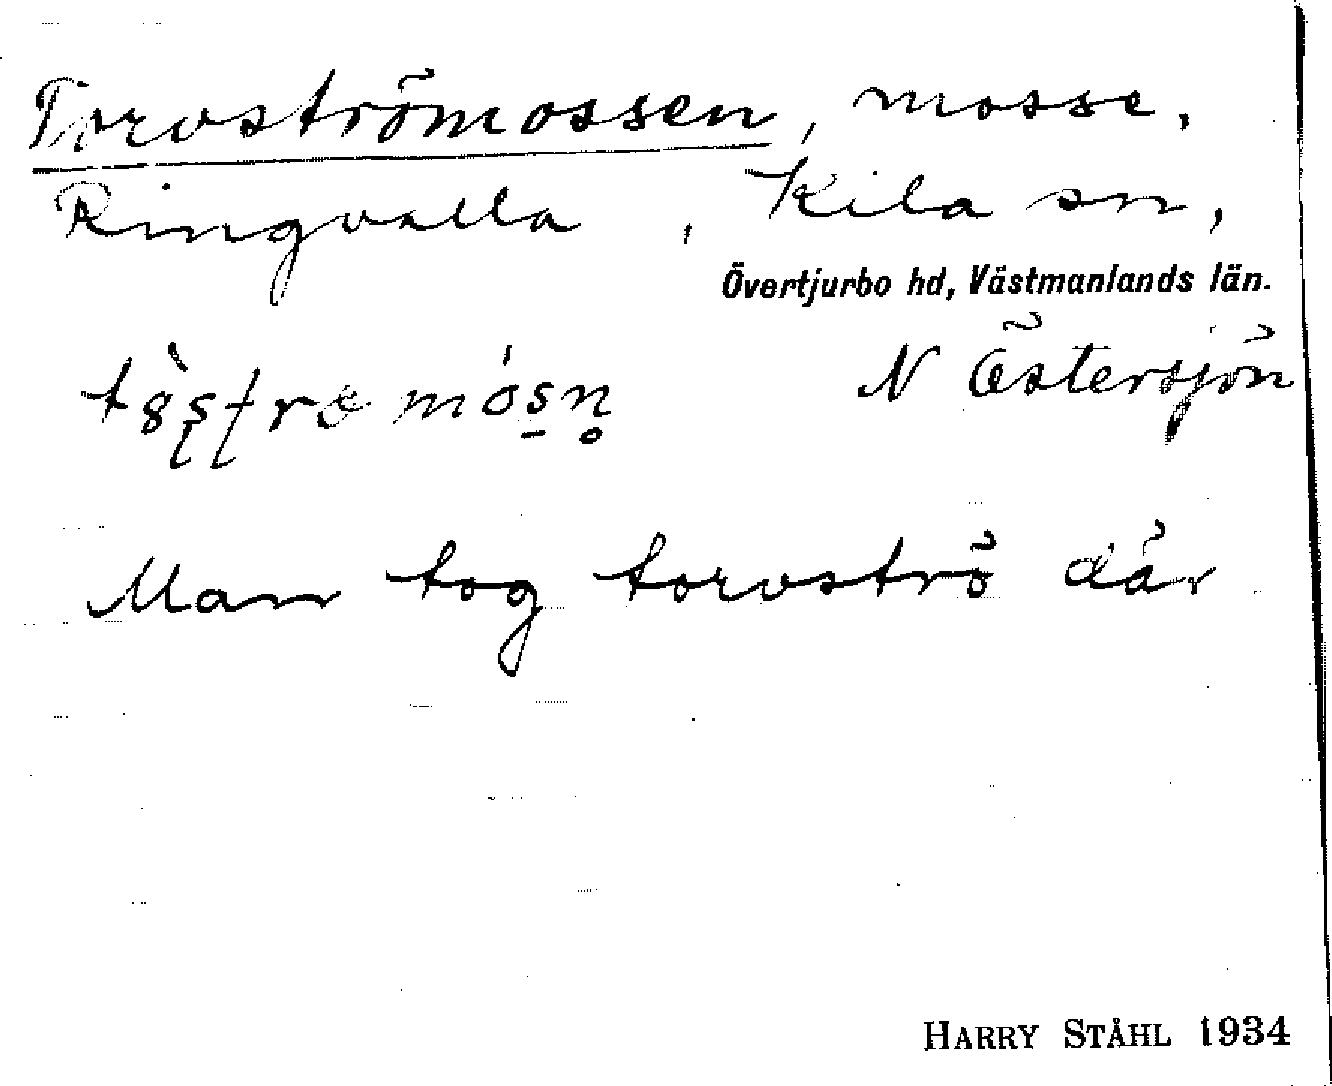 Torvströmossen, mosse,
Ringvalla, Kila sn,
Övertjurbo hd, Västmanlands län.
N Östersjön
Man tog torvströ där
HARRY STÅHL 1934